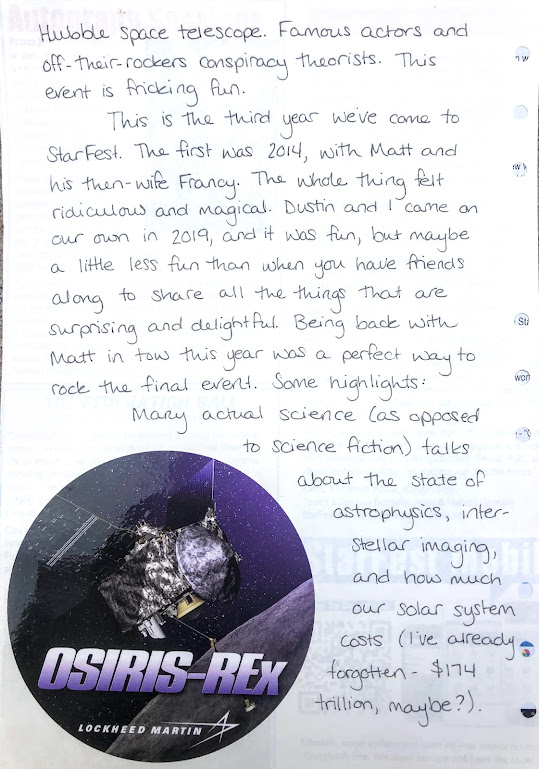 Hubble space telescope. Famous actors and
off-their-rockers conspiracy theorists. This
event is fricking fun.
This is the third year we've come to
StarFest. The first was 2014, with Matt and
his then-wife Francy. The whole thing felt
ridiculous and magical. Dustin and I came on
our own in 2019, and it was fun, but maybe
a little less fun than when you have friends
along to share all the things that are
surprising and delightful. Being back with
Matt in tow this year was a perfect way to
rock the final event. Some highlights:
Many actual science (as opposed
to science fiction) talks
about the state of
astrophysics, inter-
stellar imaging,
and how much
our solar system
costs (I've already
forgotten - $174
trillion, maybe?).
OSIRIS-REx
LOCKHEED MARTIN